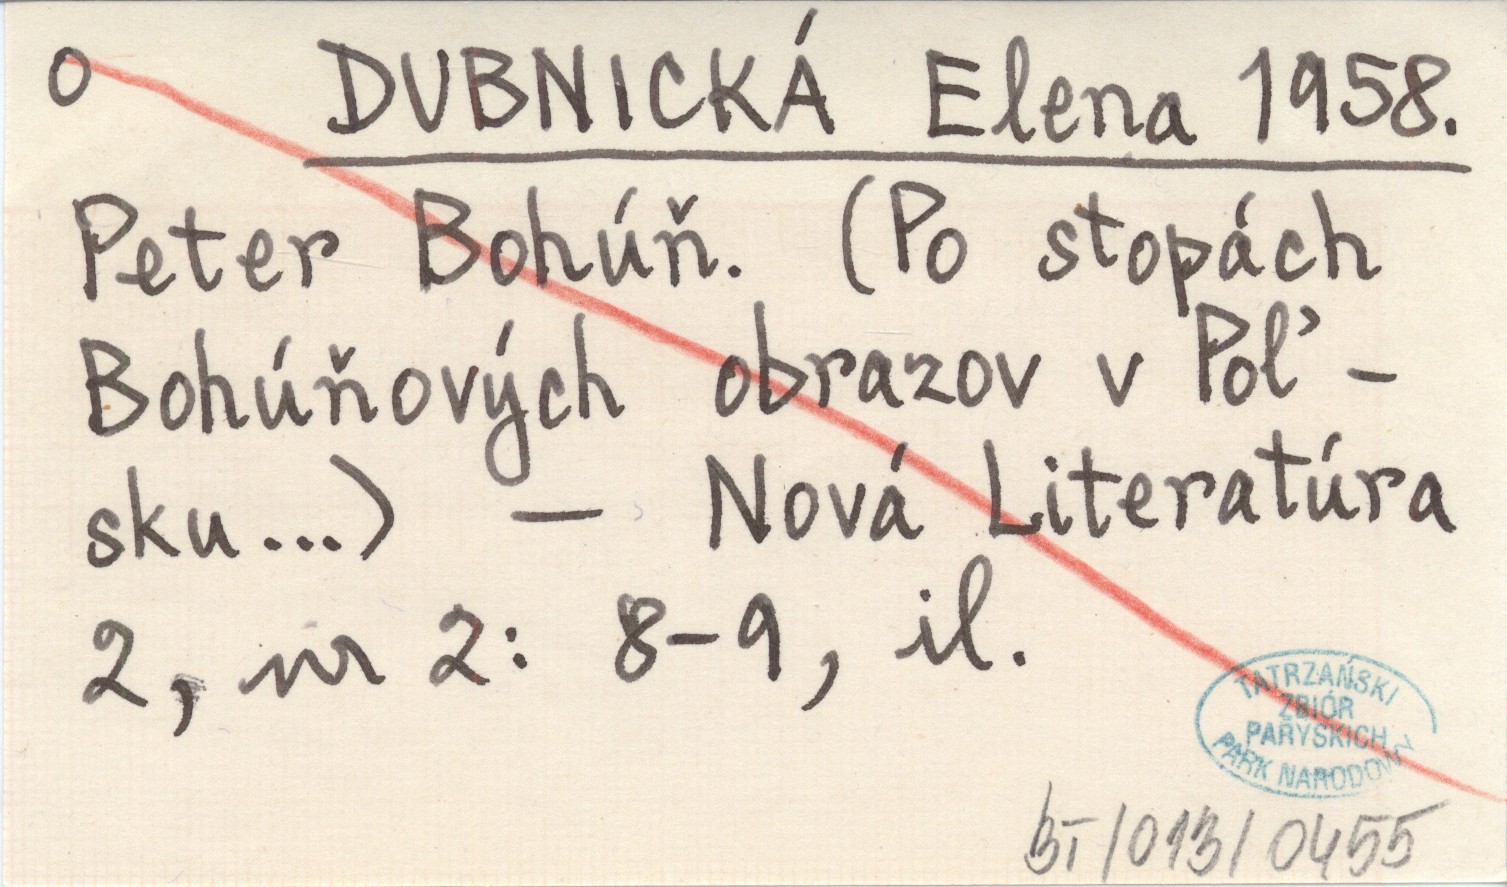 O DUBNICKÁ Elena 1958.
Peter Bohúň. (Po stopách
Bohúňových obrazov v Poľ-
sku...) — Nová Literatúra
2, nr 2: 8-9, il.
TATRZAŃSKI
ZBIÓR
PARYSKICH
PARK NARODOWY
BT/013/0455